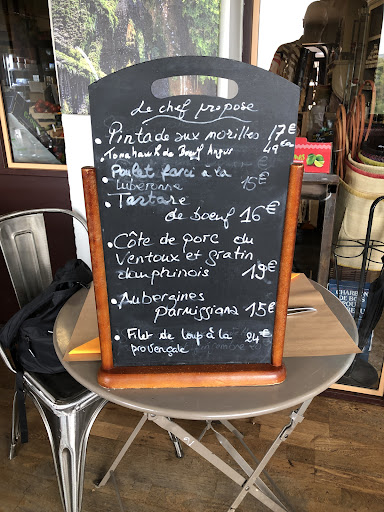 Le chef propose
• Pintade aux morilles 17€
Tomahawk de Bœuf Angus 49€
• Poulet farci à la
Luberonne 15€
• Tartare
de bœuf 16€
• Côte de porc du
Ventoux et gratin
dauphinois 19€
• Aubergines
parmigiana 15€
• Filet de loup à la 24€
provençale
CHARBON
DE BOIS